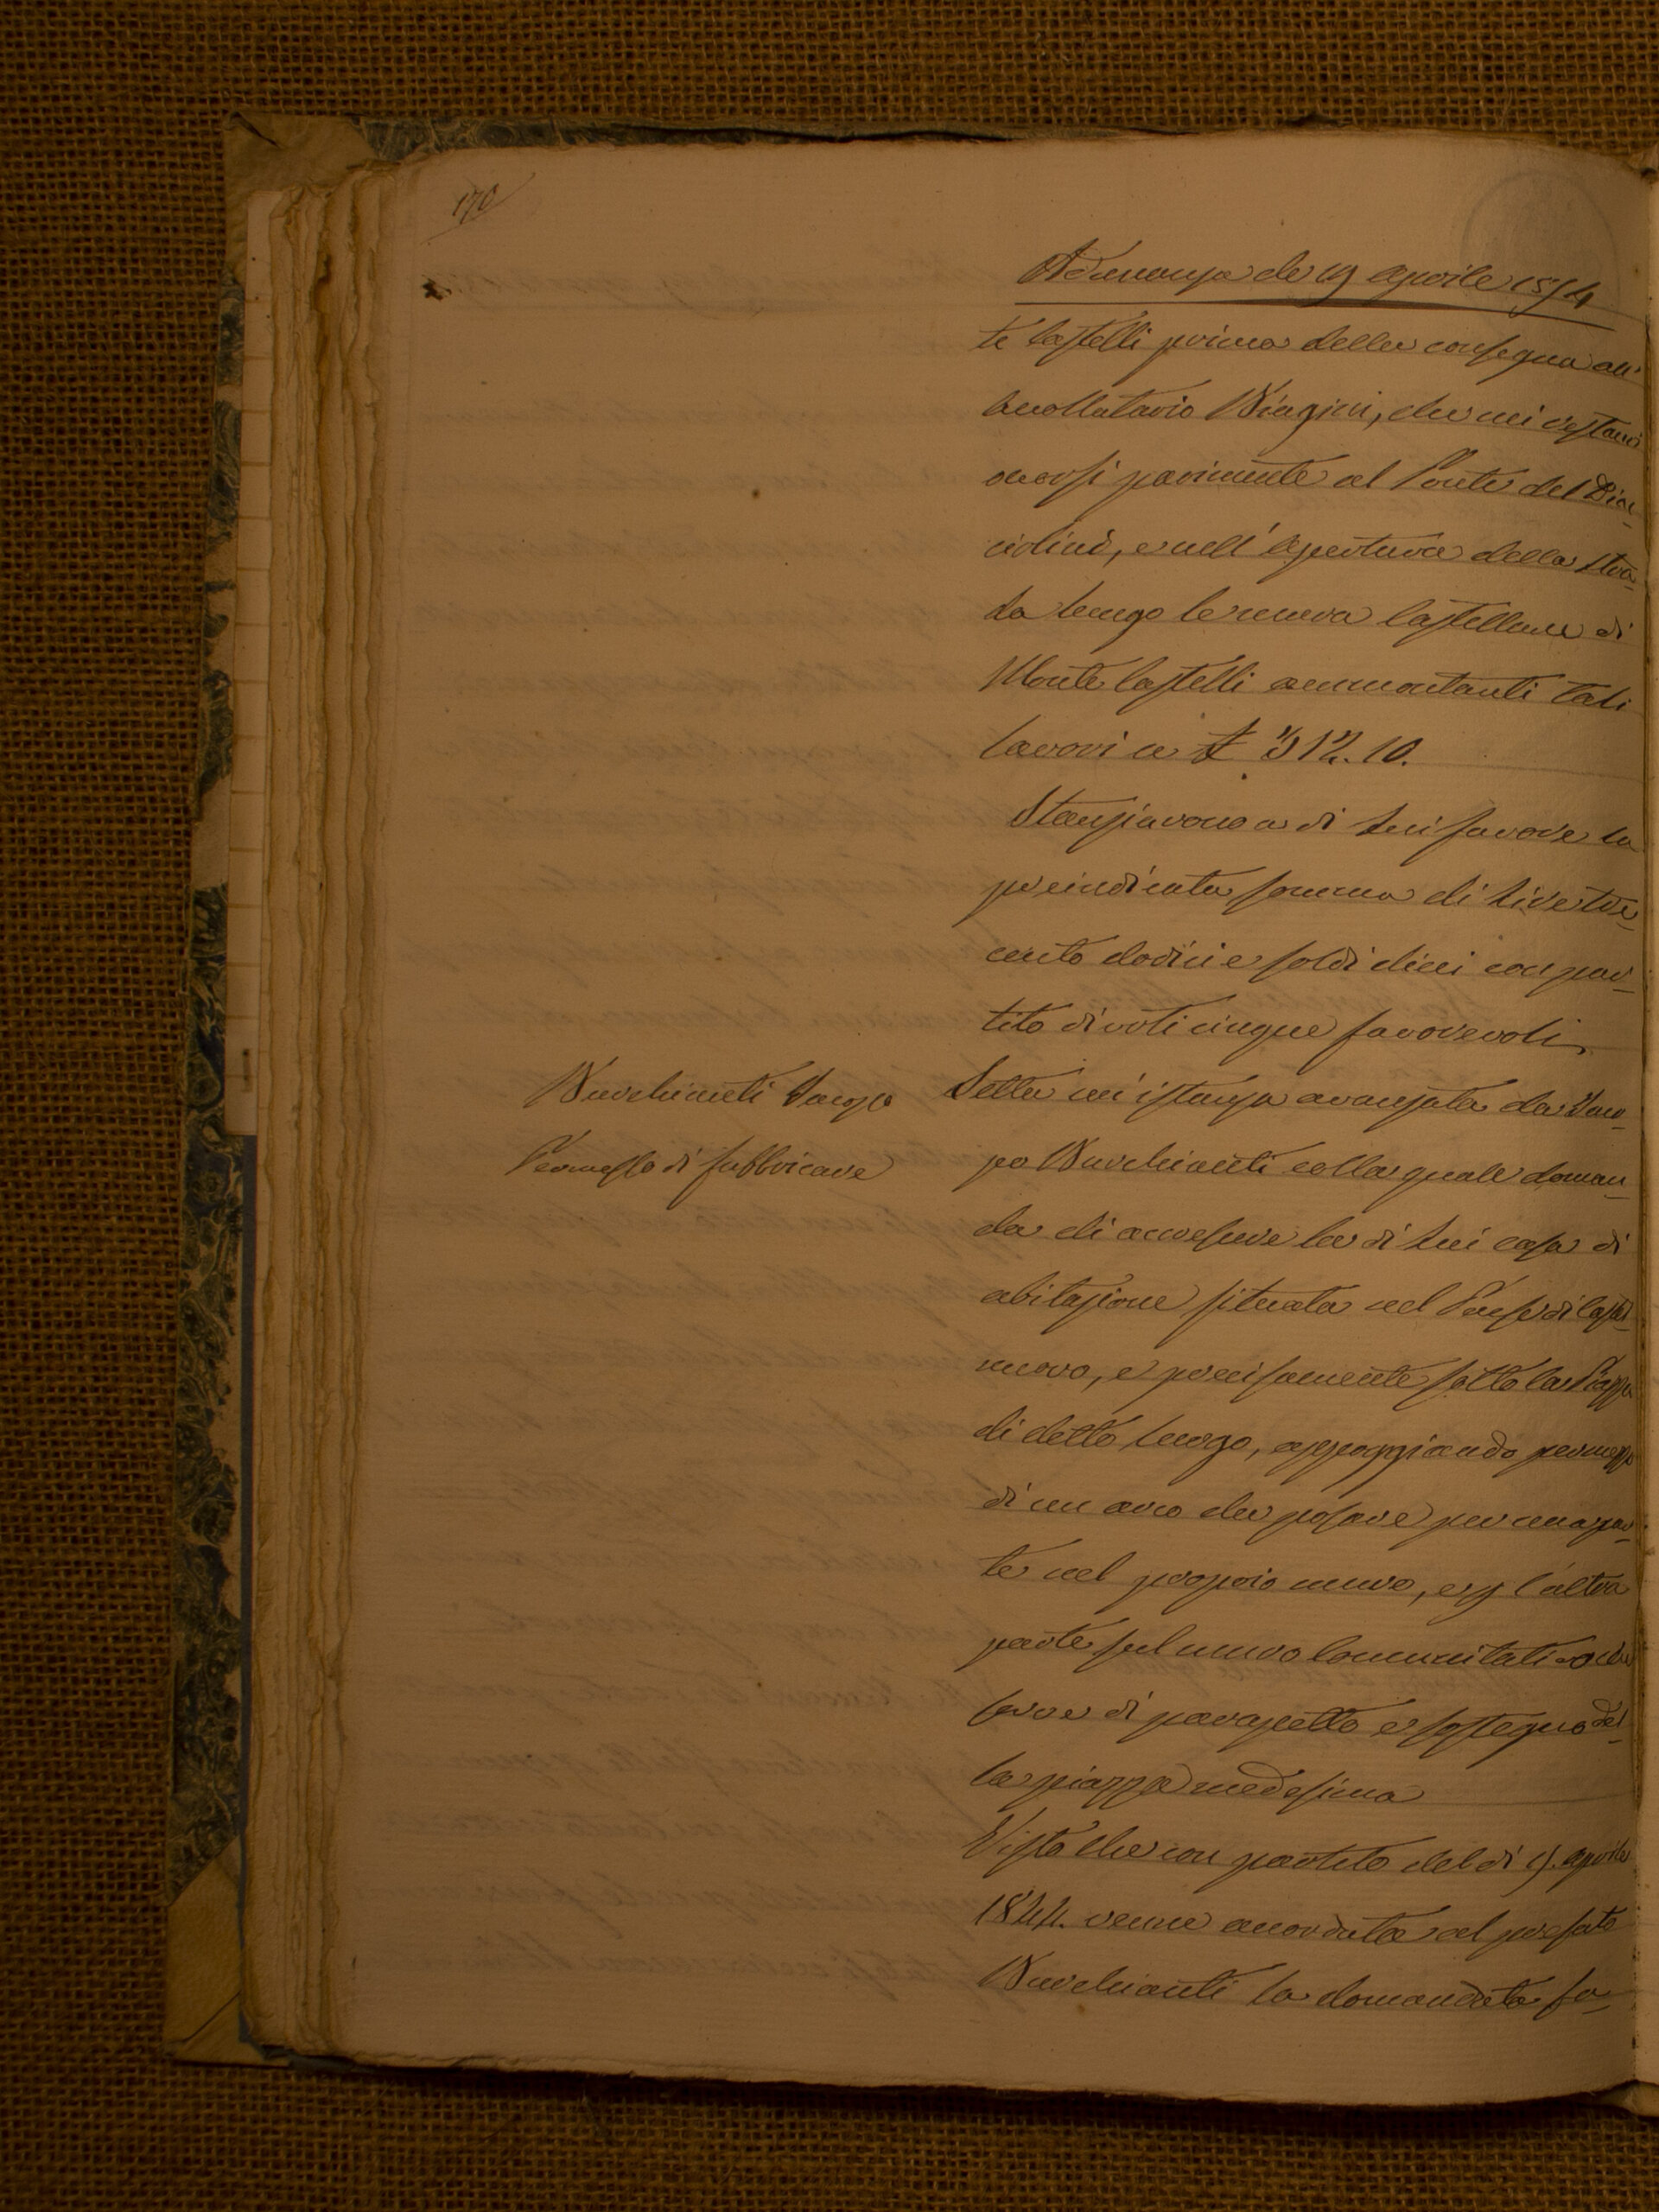 170
Adunanza de 19 Aprile 1854
te Castelli prima della consegna all'
Accollatario Biagini, che nei restauri
occorsi parimente al Ponte del
e nell'apertura della Stra-
da lungo le mura Castellane di
Monte Castelli ammontanti tali
lavori a £ 312. 10.
Stanziarono a di lui favore la
preindicata somma di lire tre-
cento dodici e soldi dieci con par-
tito di voti cinque favorevoli
Burchianti Jacopo
Permesso di fabbricare
Letta un'istanza avanzata da Jaco-
po Burchianti colla quale doman-
da di accrescere la di lui casa di
abitazione situata nel Paese di Castel-
nuovo, e precisamente sotto la Piazza
di detto luogo, appoggiando per mezzo
di un arco che posare per una par-
te nel proprio muro, e p l'altra
parte sul muro Comunitativo che
serve di parapetto e sostegno del-
la piazza medesima
Visto che con partito del dì 9. Aprile
1844. venne accordata al prefato
Burchianti la domandata fa-